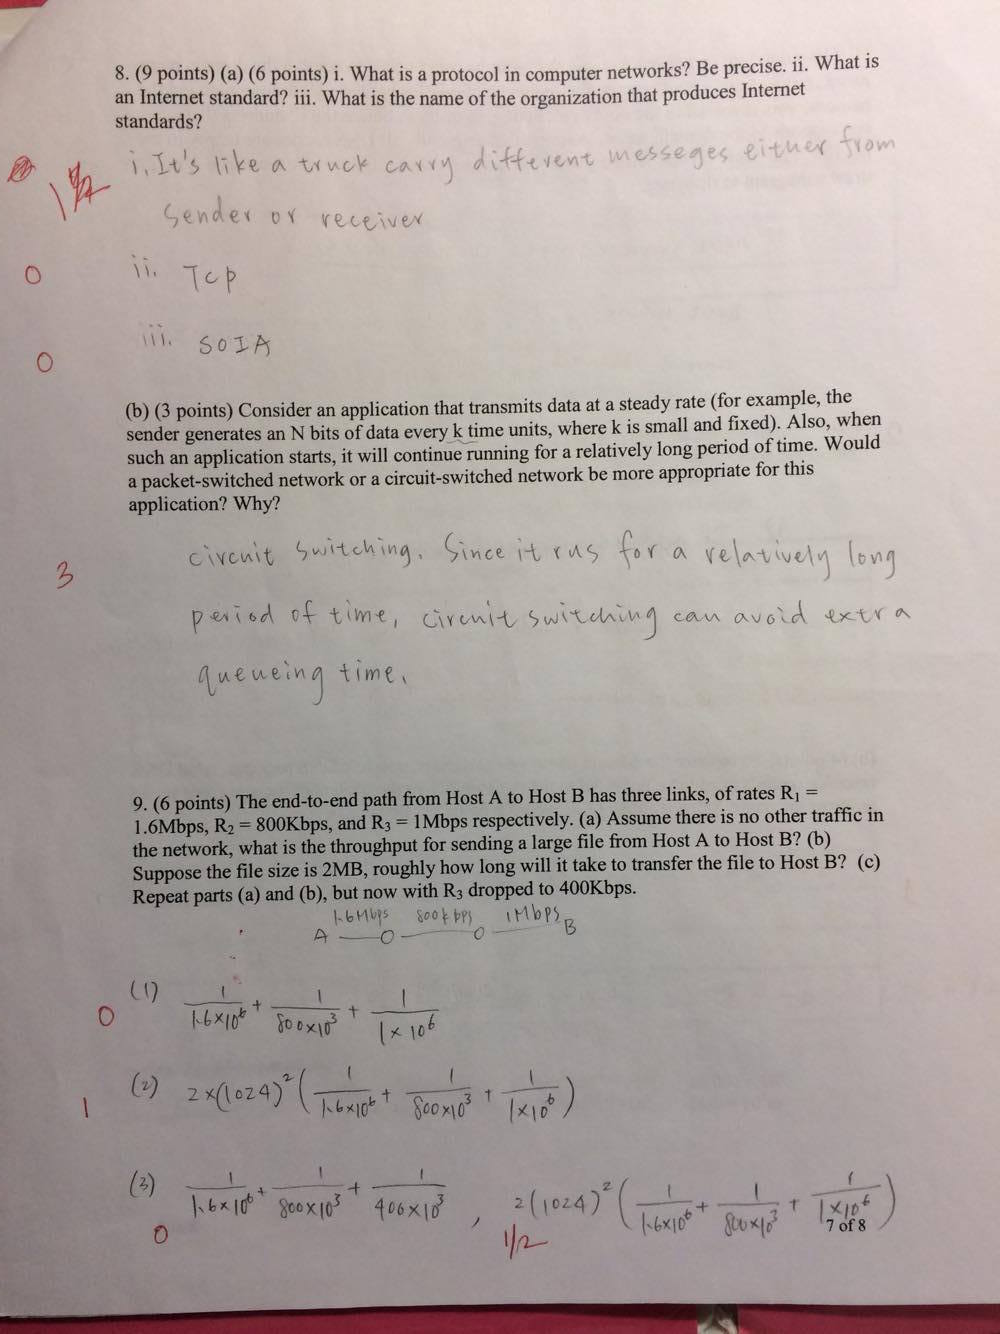 8. (9 points) (a) (6 points) i. What is a protocol in computer networks? Be precise. ii. What is
an Internet standard? iii. What is the name of the organization that produces Internet
standards?
i. It's like a truck carry different messeges either from
1 1/2
sender or receiver
0
ii. Tcp
0
iii. SOIA
(b) (3 points) Consider an application that transmits data at a steady rate (for example, the
sender generates an N bits of data every k time units, where k is small and fixed). Also, when
such an application starts, it will continue running for a relatively long period of time. Would
a packet-switched network or a circuit-switched network be more appropriate for this
application? Why?
circuit switching. Since it rus for a relatively long
3
period of time, circuit switching can avoid extra
queueing time.
9. (6 points) The end-to-end path from Host A to Host B has three links, of rates R1 =
1.6Mbps, R2 = 800Kbps, and R3 = 1Mbps respectively. (a) Assume there is no other traffic in
the network, what is the throughput for sending a large file from Host A to Host B? (b)
Suppose the file size is 2MB, roughly how long will it take to transfer the file to Host B? (c)
Repeat parts (a) and (b), but now with R3 dropped to 400Kbps.
1.6Mbps 800kbps 1Mbps
A B
0 (1) 1/1.6×10^6 + 1/800×10^3 + 1/1×10^6
1 (2) 2×(1024)^2 (1/1.6×10^6 + 1/800×10^3 + 1/1×10^6)
(3) 1/1.6×10^6 + 1/800×10^3 + 1/400×10^3 , 2(1024)^2 (1/1.6×10^6 + 1/800×10^3 + 1/1×10^6)
7 of 8
0 1/2